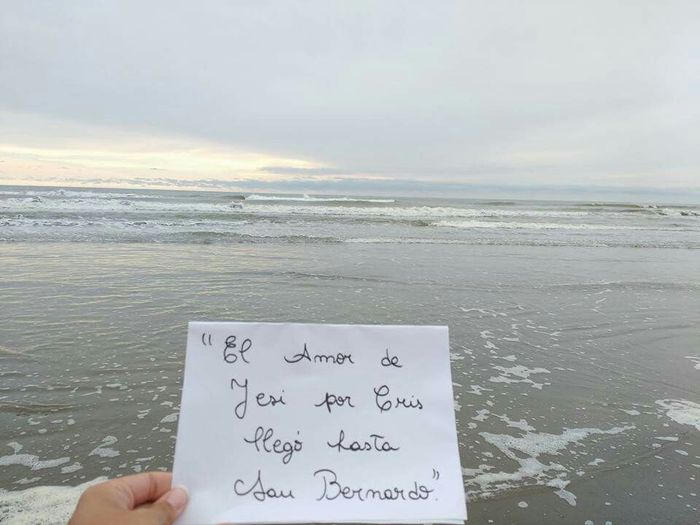 "El Amor de
Jesi por Cris
llegó hasta
San Bernardo."